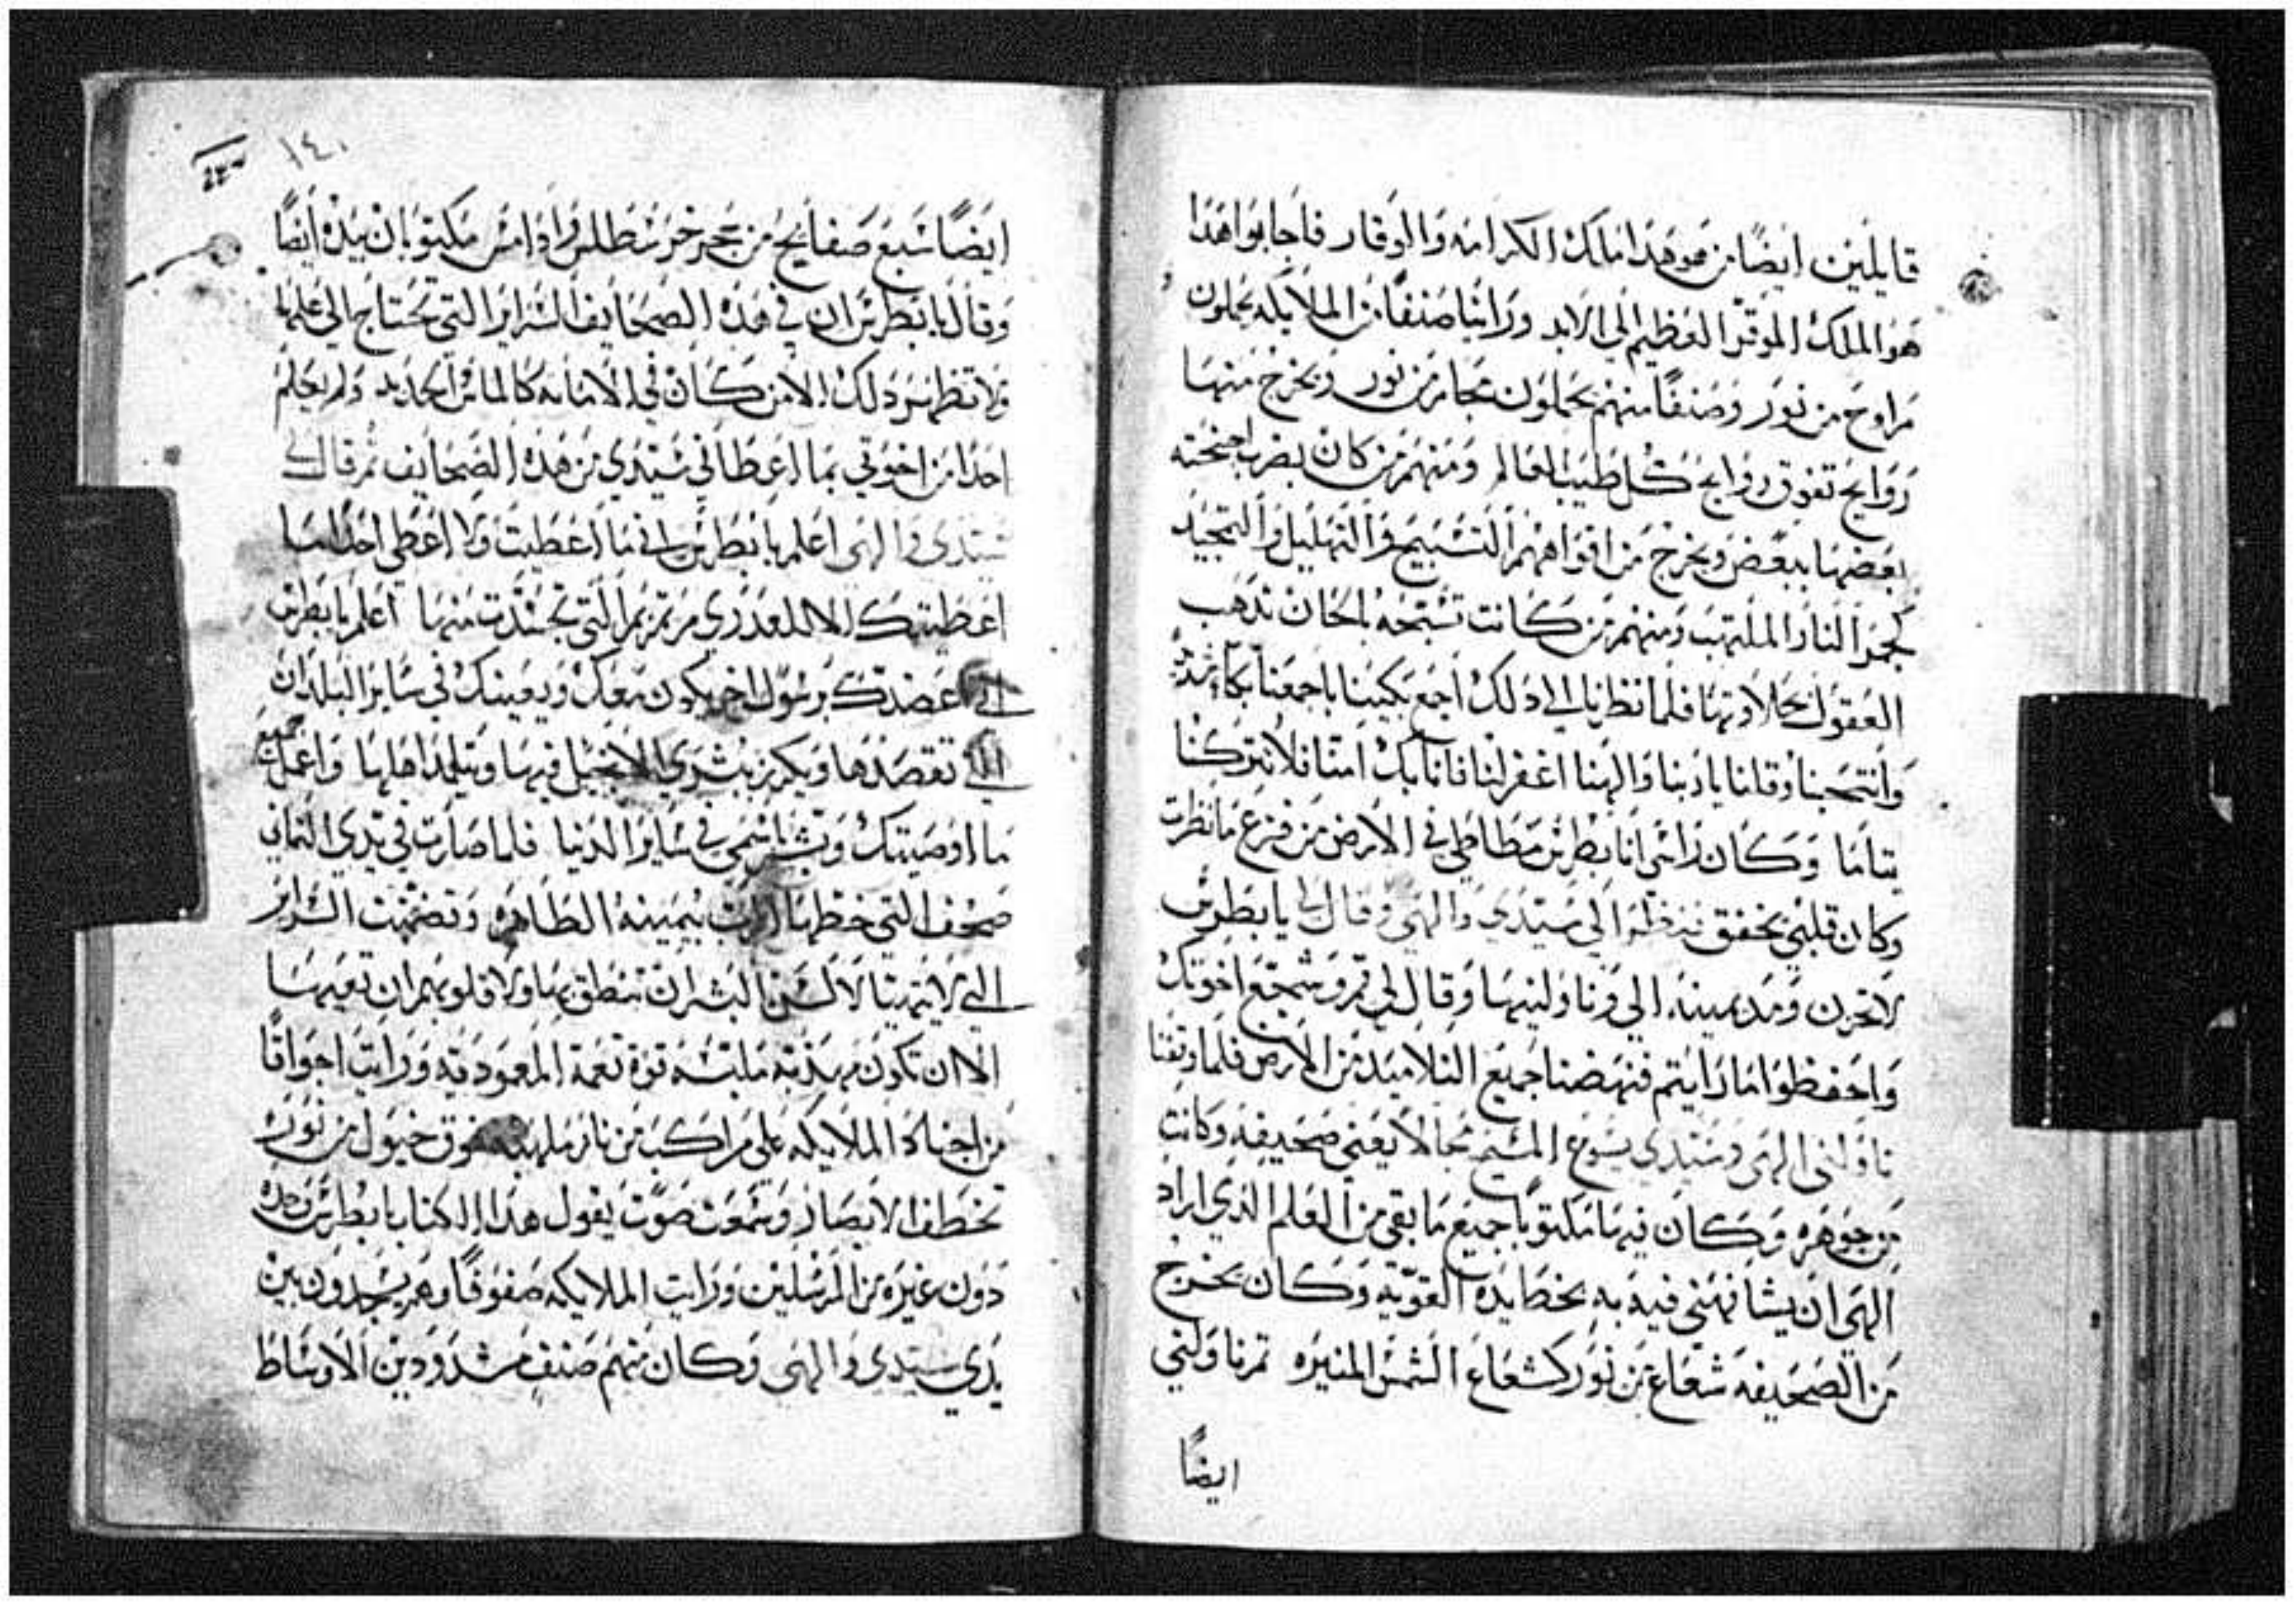 قايلين ايضًا من هو هذا ملك الكرامه والوقار فاجابوا هذا
هو الملك الموقر العظيم الى الابد ورائنا صنفًا من الملايكه يحملون
مراوح من نور وصنفًا منهم يحملون مجامر من نور ويخرج منها
روايح تفوق روايح كل طيب العالم ومنهم من كان يضرب اجنحته
بعضها ببعض ويخرج من افواههم التسبيح والتهليل والتمجيد
كجمر النار الملتهب ومنهم من كانت تسبحه بالحان تذهب
العقول بحلاوتها فلما نظرنا الى ذلك اجمع بكينا باجمعنا بكاء شديد
وانتحبنا وقلنا يا ربنا والهنا اغفر لنا فاننا بك امنا فلا تتركنا
يتاما وكان راسى انا بطرس مطاطي في الارض من فزع ما نظرت
وكان قلبي يخفق فنظر الى سيدي والهي وقال لي يا بطرس
لا تحزن ومد يمينه الي وناولنيها وقال لي قم وشجع اخوتك
واحفظوا ما رايتم فنهضنا جميع التلاميد من الارض فلما وقفنا
ناولني الهي وسيدي يسوع المسيح مجالا يعني صحيفه وكانت
من جوهره وكان فيها مكتوبًا جميع ما بقي من العلم الذي اراد
الهي ان يشافهني فيه به بخط يده القويه وكان يخرج
من الصحيفه شعاع من نور كشعاع الشمس المنيره تم ناولني
ايضًا
١٤٠
ايضًا سبع صفايح من حجر اخر مكتوبان بيده ايضًا
وقال يا بطرس ان في هذه الصحايف السراير التي تحتاج الى علمها
ولا تظهر ذلك الا من كان في الامانه كالماس الحديد ولم يعلم
احدا من اخوتي بما اعطاني سيدي من هذه الصحايف ثم قال
سيدي والهي اعلم يا بطرس اني ما اعطيت ولا اعطي احدا ما
اعطيتك الا للعدري مرتمريم التي تجسدت منها اعلم يا بطرس
اني اعضدتك برسول اخر يكون معك ويعينك في ساير البلدان
التي تقصدها ويكرز ببشري الانجيل فيها ويتلمذ اهلها واعمل جميع
ما اوصيتك وبشر باسمي في ساير الدنيا فلما صارت في يدي التماني
صحف التي خطها الرب بيمينه الطاهره وتضمنت السراير
التي لا يتهيا لالسن البشر ان تنطق بها ولا قلوبهم ان تعيها
الا ان تكون مهذبه ملتبسه قوة نعمة المعموديه ورايت اجواقًا
من اجناد الملايكه على مراكب من نار ملهبه فوق خيول من نور
تخطف الابصار وسمعت صوت يقول هذا الكتاب يا بطرس وحدك
دون غيره من المرسلين ورايت الملايكه صفوفًا وهم يسجدون بين
يدي سيدي والهي وكان منهم صنف مشدودين الاوساط